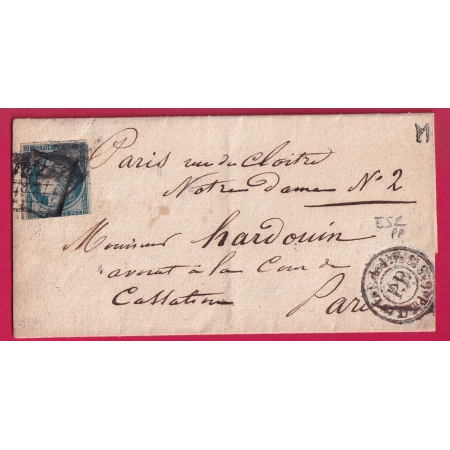 REPUB
M
Paris rue du Cloitre
Notre Dame N° 2
ESC
PP
Monsieur hardouin
avocat à la Cour de
Cassation Paris